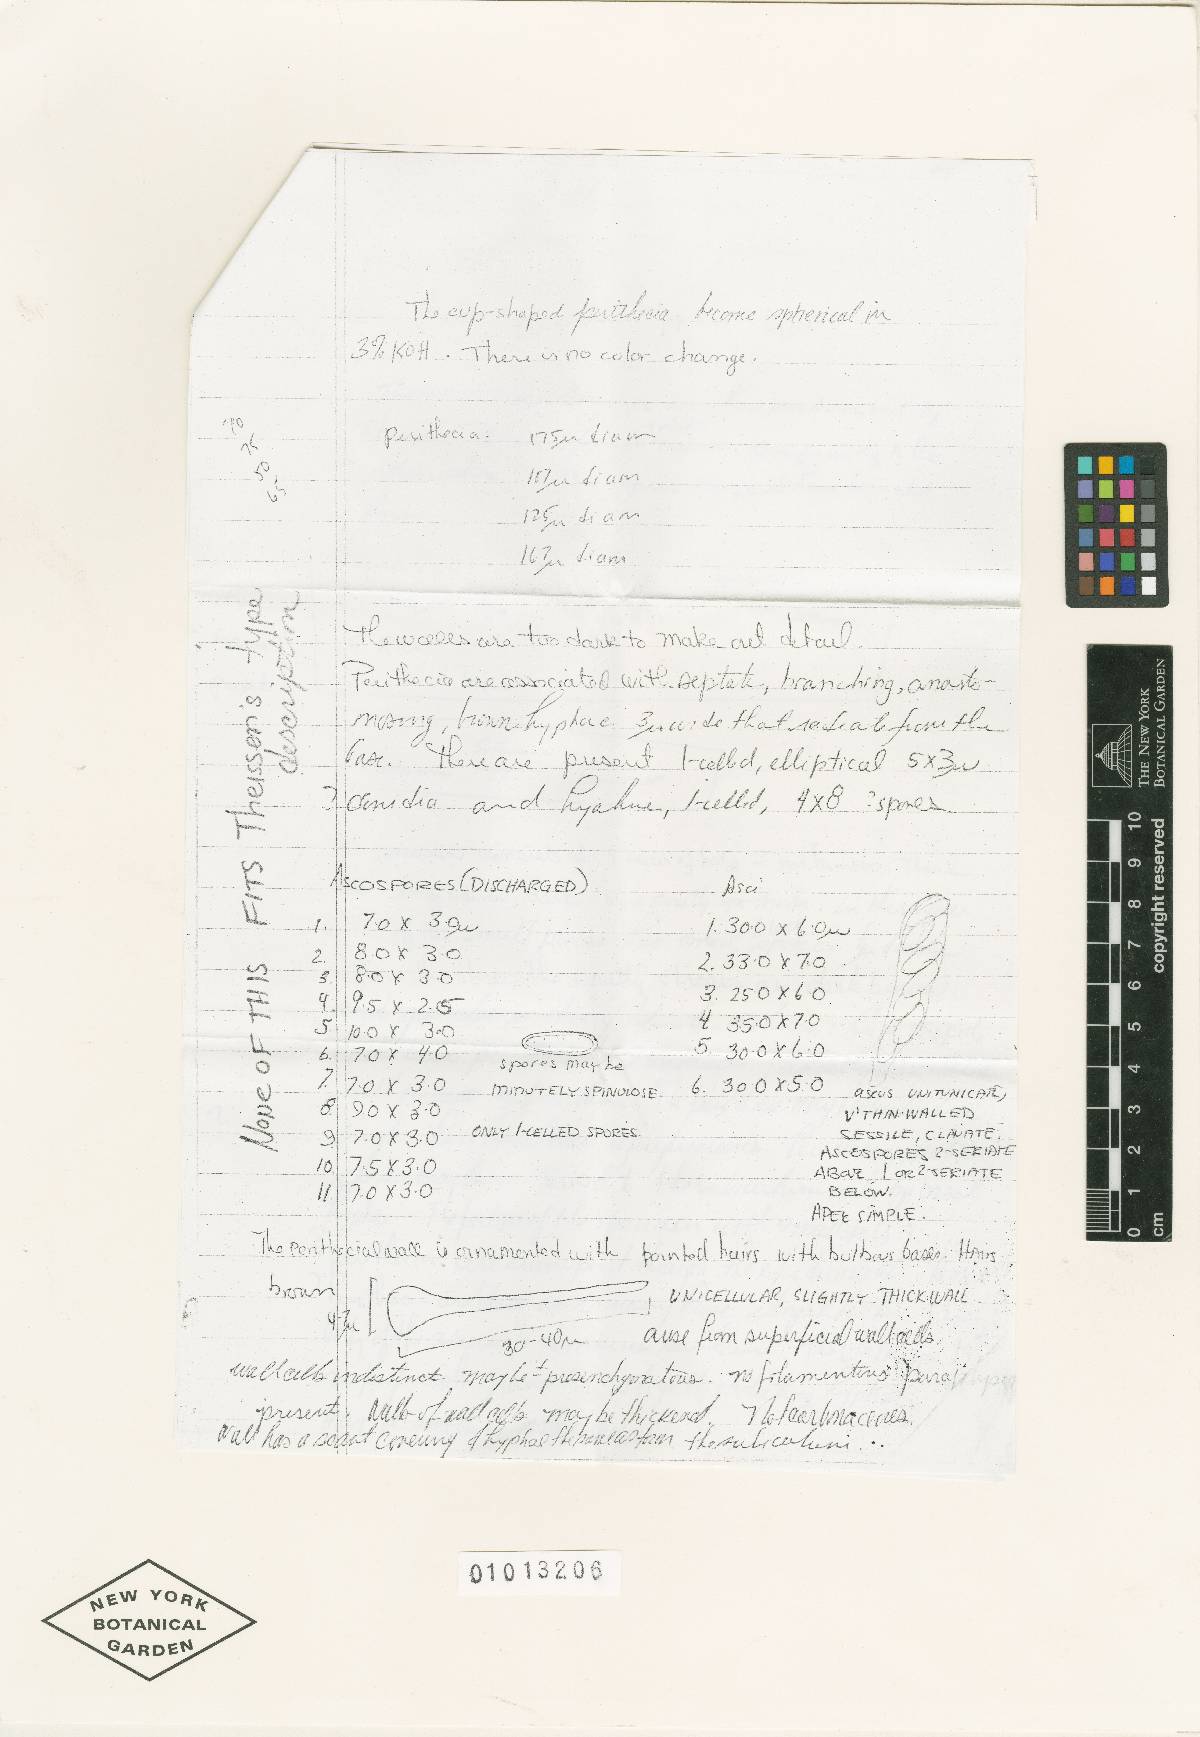 The cup-shaped perithecia become spherical in
3% KOH. There is no color change.
perithecia. 175µ diam
167µ diam
125µ diam
167µ diam
70
75
50
65
None OF THIS FITS Theissen's type
description
The walls are too dark to make out detail.
Perithecia are associated with septate, branching, anasto-
mosing, brown hyphae 3µ wide that radiate from the
base. There are present 1-celled, elliptical 5x3µ
? conidia and hyaline, 1-celled, 4x8 ?spores
ASCOSPORES (DISCHARGED)
1. 7.0 x 3.0µ
2. 8.0 x 3.0
3. 8.0 x 3.0
4. 9.5 x 2.5
5. 10.0 x 3.0
6. 7.0 x 4.0
7. 7.0 x 3.0
8. 9.0 x 3.0
9. 7.0 x 3.0
10. 7.5 x 3.0
11. 7.0 x 3.0
spores may be
MINUTELY SPINULOSE.
ONLY 1-CELLED SPORES
Asci
1. 30.0 x 6.0µ
2. 33.0 x 7.0
3. 25.0 x 6.0
4. 35.0 x 7.0
5. 30.0 x 6.0
6. 30.0 x 5.0
ascus UNITUNICATE,
V. THIN-WALLED
SESSILE, CLAVATE.
ASCOSPORES 2-SERIATE
ABOVE, 1 OR 2-SERIATE
BELOW.
APEX SIMPLE.
The perithecial wall is ornamented with pointed hairs with bulbous bases. Hairs
brown
UNICELLULAR, SLIGHTLY THICK WALL
4µ
30-40µ
arise from superficial wall cells.
wall cells indistinct may be ± prosenchymatous. no filamentous
present. Walls of wall cells may be thickened. Not carbonaceous.
Wall has a scant covering of hyphae from the subiculum...
THE NEW YORK
BOTANICAL GARDEN
copyright reserved
0 1 2 3 4 5 6 7 8 9 10
cm
01013206
NEW YORK
BOTANICAL
GARDEN